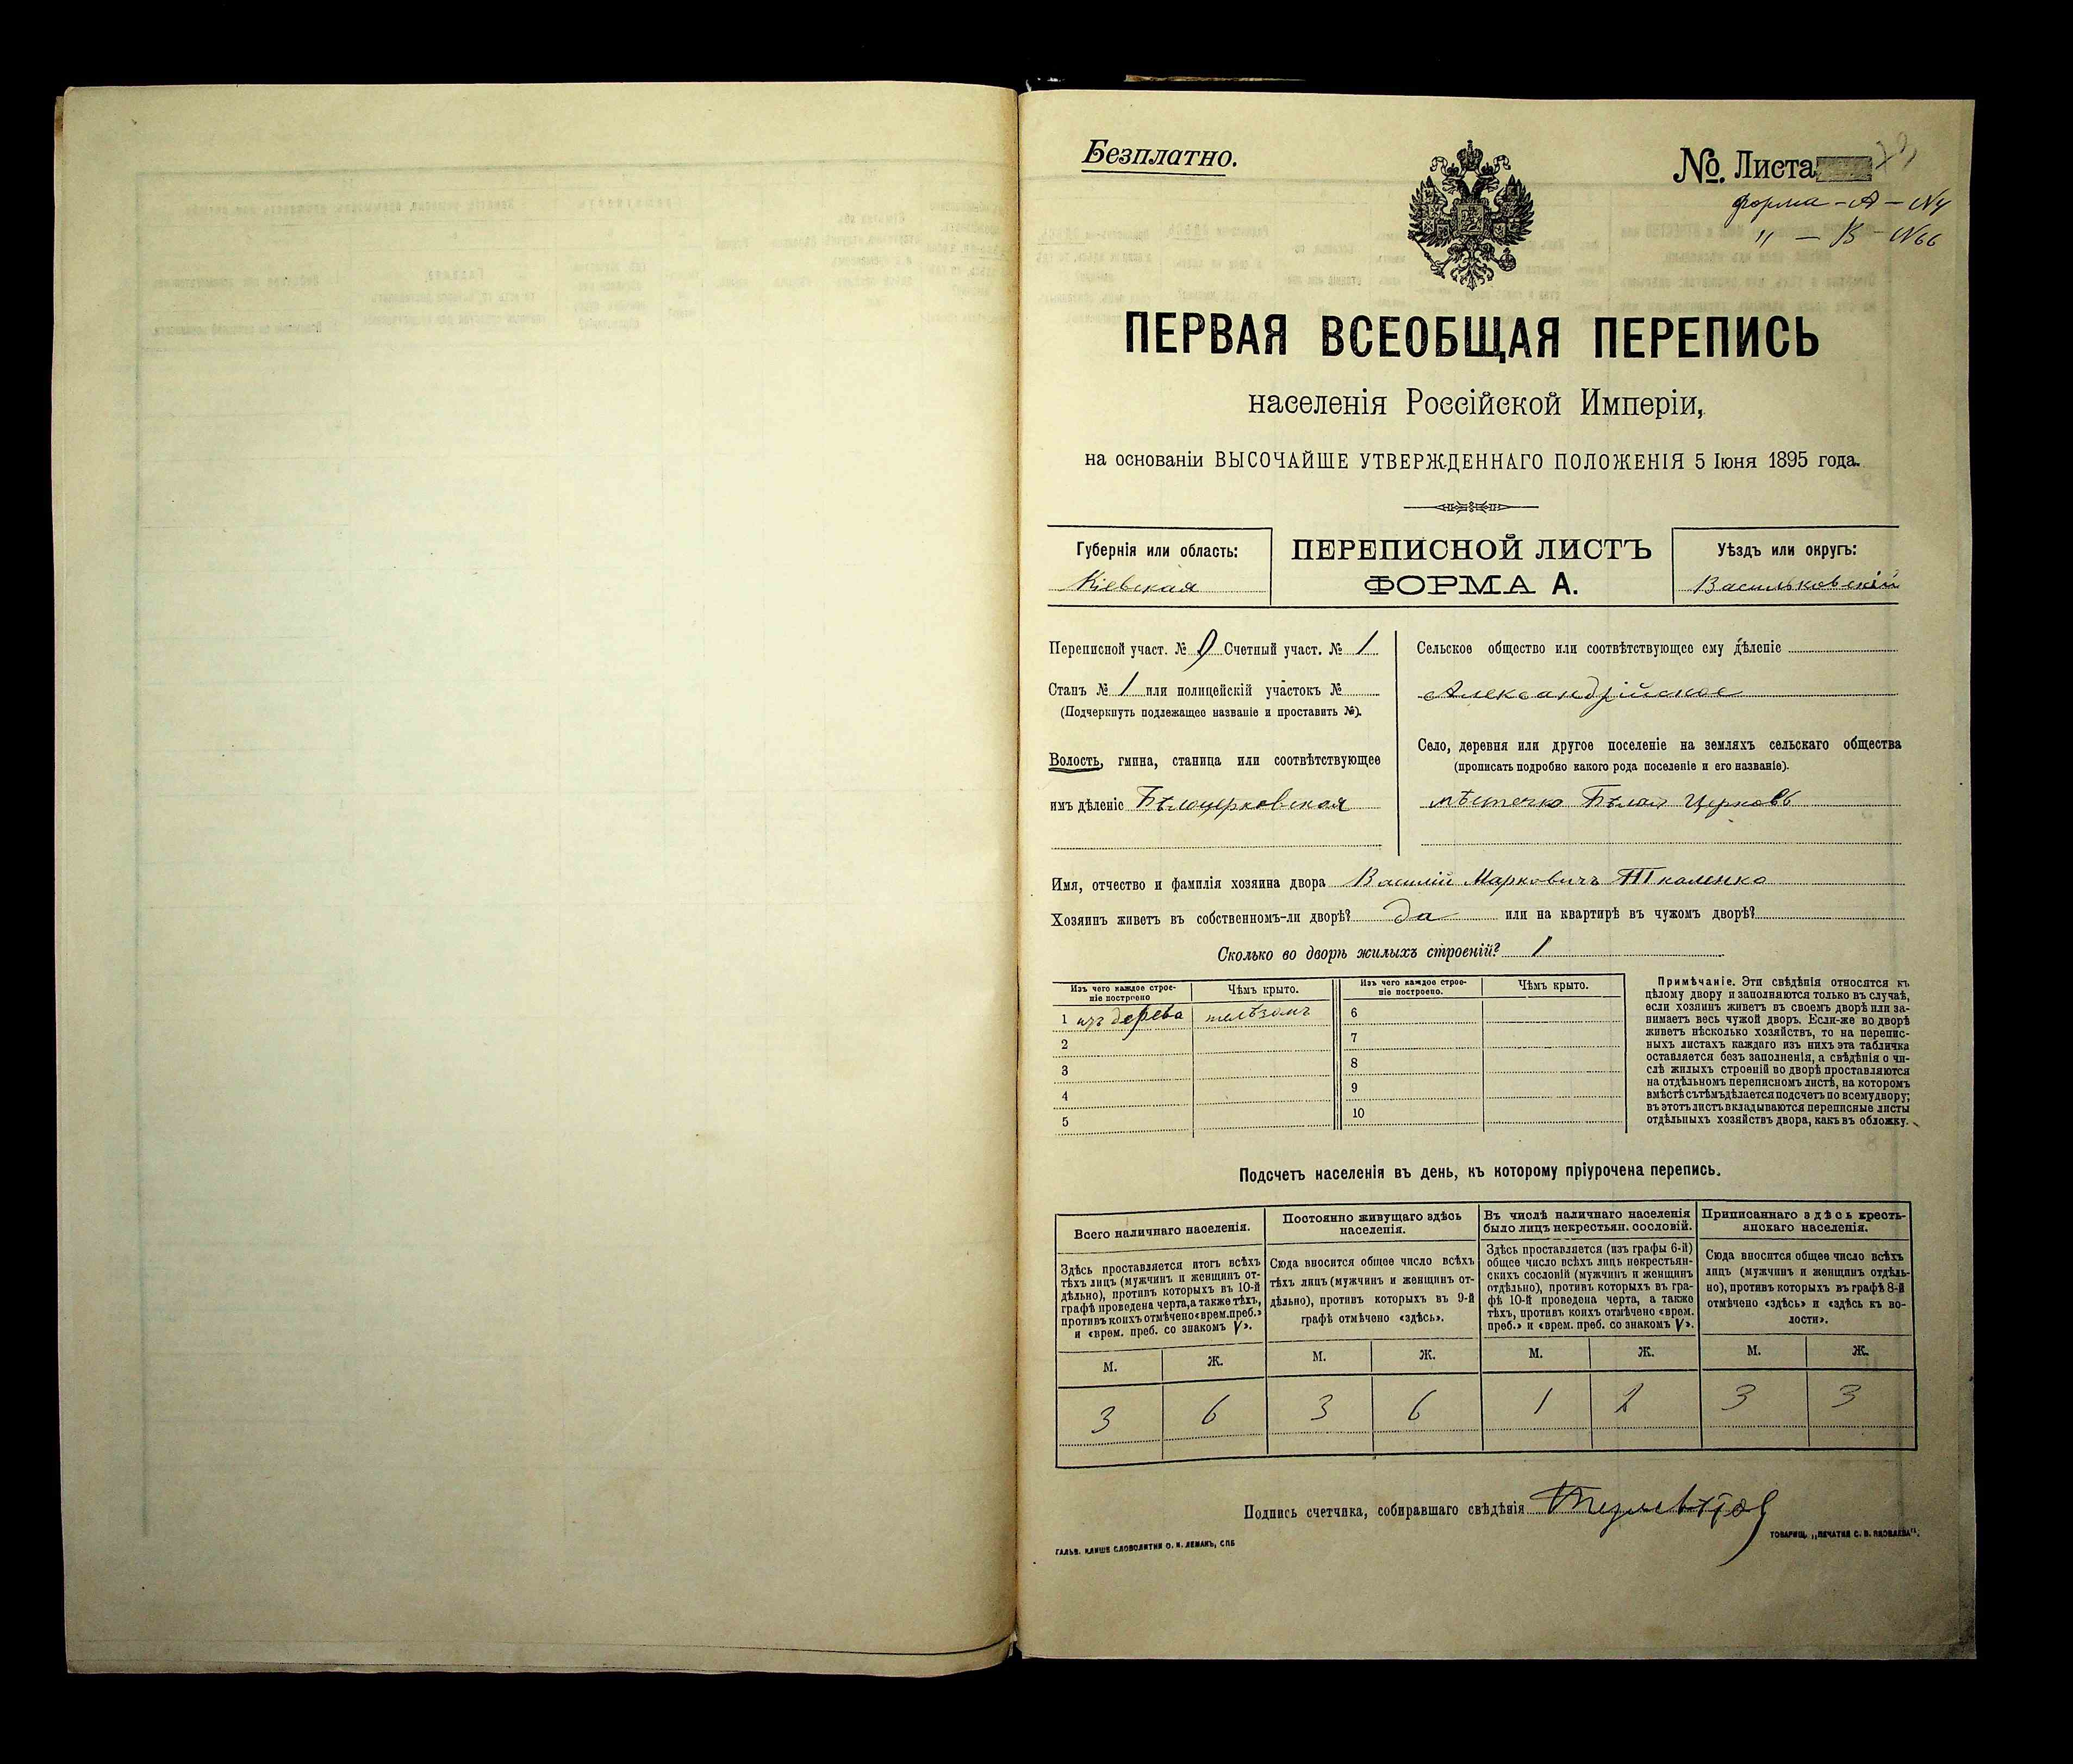 Безплатно.
№. Листа
форма - А - №4
" - В - №66
ПЕРВАЯ ВСЕОБЩАЯ ПЕРЕПИСЬ
населенія Россійской Имперіи,
на основаніи ВЫСОЧАЙШЕ УТВЕРЖДЕННАГО ПОЛОЖЕНІЯ 5 Іюня 1895 года.
Губернія или область:
Кіевская
ПЕРЕПИСНОЙ ЛИСТЪ
ФОРМА А.
Уѣздъ или округъ:
Васильковскій
Переписной участ. № 9 Счетный участ. № 1
Станъ № 1 или полицейскій участокъ №
(Подчеркнуть подлежащее названіе и проставить №).
Волость, гмина, станица или соотвѣтствующее
имъ дѣленіе Бѣлоцерковская
Сельское общество или соотвѣтствующее ему дѣленіе
Александрійское
Село, деревня или другое поселеніе на земляхъ сельскаго общества
(прописать подробно какого рода поселеніе и его названіе).
мѣстечко Бѣлая Церковь
Имя, отчество и фамилія хозяина двора Василій Марковичъ Ткаленко
Хозяинъ живетъ въ собственномъ-ли дворѣ? да или на квартирѣ въ чужомъ дворѣ?
Сколько во дворѣ жилыхъ строеній? 1
Изъ чего каждое строе-
ніе построено
Чѣмъ крыто.
1 изъ дерева желѣзомъ
2
3
4
5
Изъ чего каждое строе-
ніе построено.
Чѣмъ крыто.
6
7
8
9
10
Примѣчаніе. Эти свѣдѣнія относятся къ
цѣлому двору и заполняются только въ случаѣ,
если хозяинъ живетъ въ своемъ дворѣ или за-
нимаетъ весь чужой дворъ. Если-же во дворѣ
живетъ нѣсколько хозяйствъ, то на перепис-
ныхъ листахъ каждаго изъ нихъ эта табличка
оставляется безъ заполненія, а свѣдѣнія о чи-
слѣ жилыхъ строеній во дворѣ проставляются
на отдѣльномъ переписномъ листѣ, на которомъ
вмѣстѣ съ тѣмъ дѣлается подсчетъ по всему двору;
въ этотъ листъ вкладываются переписные листы
отдѣльныхъ хозяйствъ двора, какъ въ обложку.
Подсчетъ населенія въ день, къ которому пріурочена перепись.
Всего наличнаго населенія.
Здѣсь проставляется итогъ всѣхъ
тѣхъ лицъ (мужчинъ и женщинъ от-
дѣльно), противъ которыхъ въ 10-й
графѣ проведена черта, а также тѣхъ,
противъ коихъ отмѣчено «врем. преб.»
и «врем. преб. со знакомъ V».
М. Ж.
3 6
Постоянно живущаго здѣсь
населенія.
Сюда вносится общее число всѣхъ
тѣхъ лицъ (мужчинъ и женщинъ от-
дѣльно), противъ которыхъ въ 9-й
графѣ отмѣчено «здѣсь».
М. Ж.
3 6
Въ числѣ наличнаго населенія
было лицъ некрестьян. сословій.
Здѣсь проставляется (изъ графы 6-й)
общее число всѣхъ лицъ некрестьян-
скихъ сословій (мужчинъ и женщинъ
отдѣльно), противъ которыхъ въ гра-
фѣ 10-й проведена черта, а также
тѣхъ, противъ коихъ отмѣчено «врем.
преб.» и «врем. преб. со знакомъ V».
М. Ж.
1
Приписаннаго здѣсь кресть-
янскаго населенія.
Сюда вносится общее число всѣхъ
лицъ (мужчинъ и женщинъ отдѣль-
но), противъ которыхъ въ графѣ 8-й
отмѣчено «здѣсь» и «здѣсь къ во-
лости».
М. Ж.
3 3
Подпись счетчика, собиравшаго свѣдѣнія
ГАЛЬВ. КЛИШЕ СЛОВОЛИТНИ О. И. ЛЕМАНЪ, СПБ
ТОВАРИЩ. „ПЕЧАТНЯ С. П. ЯКОВЛЕВА".